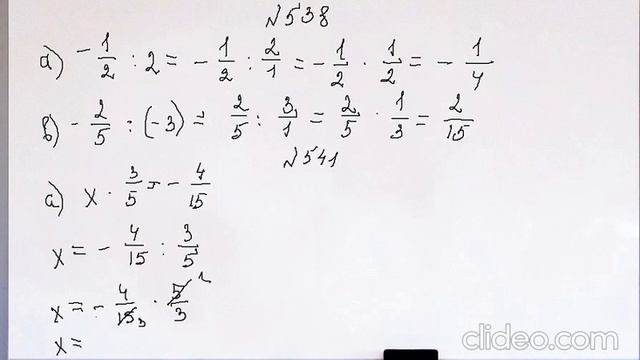 №538
а) -1/2 : 2 = -1/2 : 2/1 = -1/2 · 1/2 = -1/4
в) -2/5 : (-3) = 2/5 : 3/1 = 2/5 · 1/3 = 2/15
№541
а) x · 3/5 = -4/15
x = -4/15 : 3/5
x = -4/15 3 · 5/3 1
x =
clideo.com